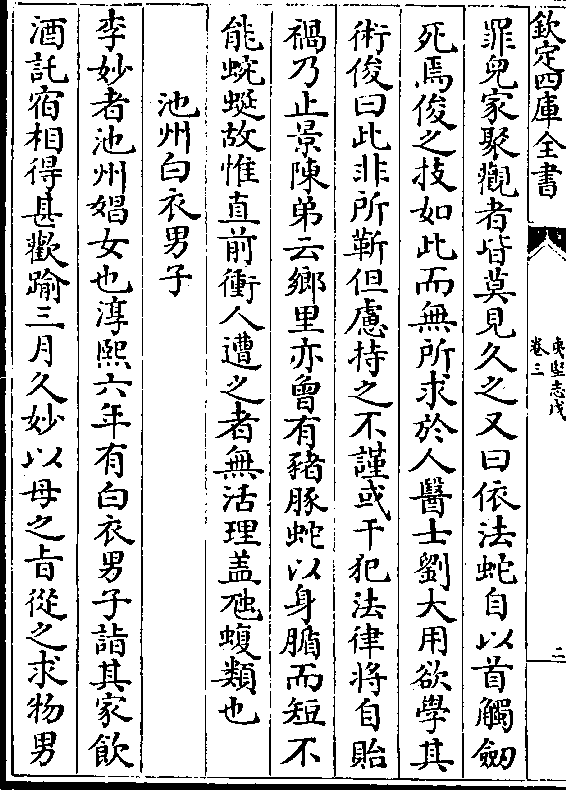 欽定四庫全書
夷堅志戊
卷三
二
罪兒家聚觀者皆莫見久之又曰依法蛇自以首觸劒
死焉俊之技如此而無所求於人醫士劉大用欲學其
術俊曰此非所靳但慮持之不謹或干犯法律將自貽
禍乃止景陳弟云鄉里亦曾有豬豚蛇以身腯而短不
能蜿蜒故惟直前衝人遭之者無活理盖虺蝮類也
池州白衣男子
李妙者池州娼女也淳熙六年有白衣男子詣其家飲
酒託宿相得甚歡踰三月久妙以母之旨從之求物男